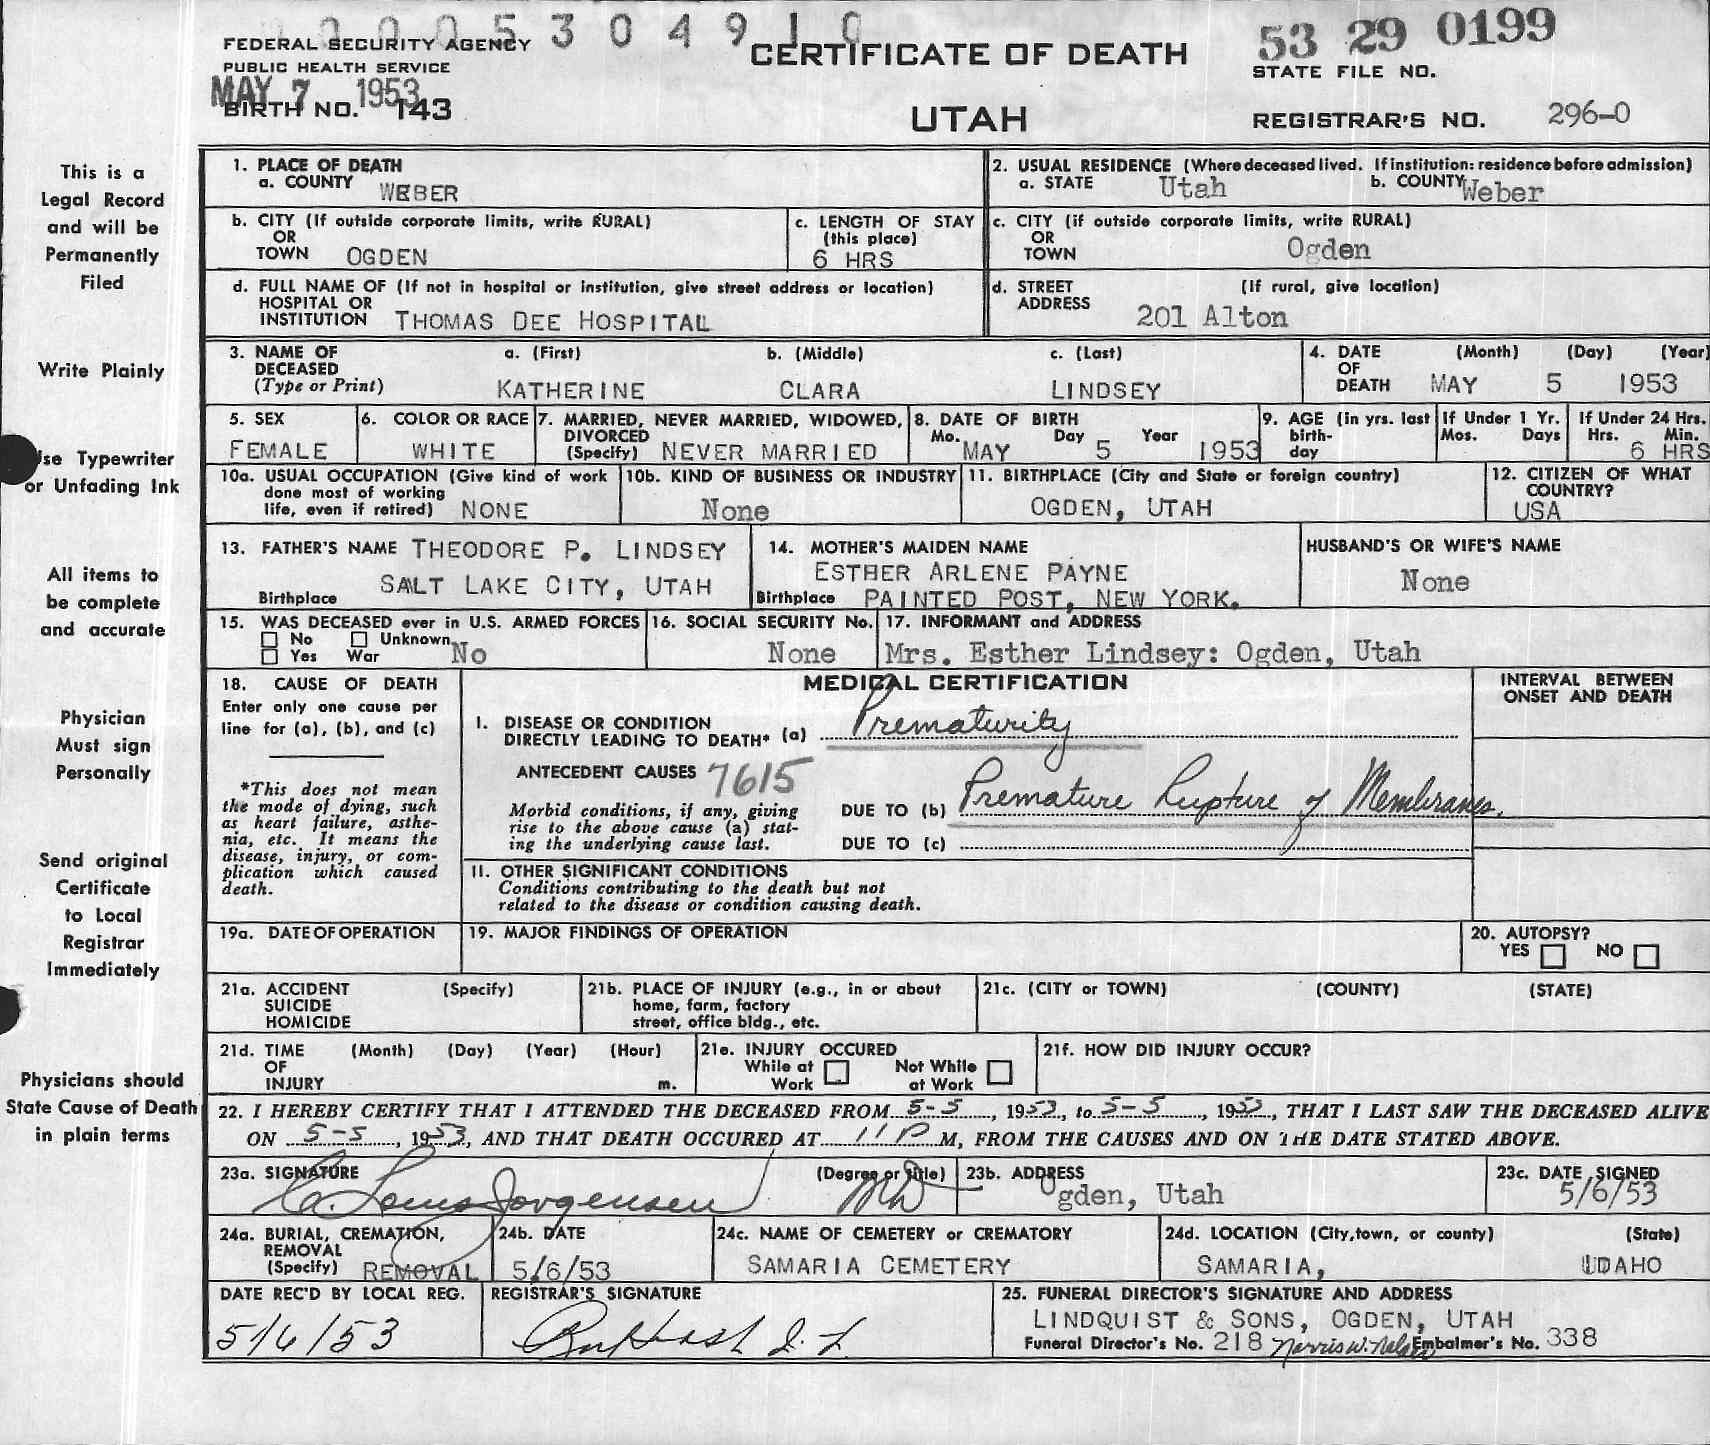 0005304910
FEDERAL SECURITY AGENCY
PUBLIC HEALTH SERVICE
MAY 7 1953
BIRTH NO. 143
CERTIFICATE OF DEATH
UTAH
53 29 0199
STATE FILE NO.
REGISTRAR'S NO. 296-0
This is a
Legal Record
and will be
Permanently
Filed
Write Plainly
Use Typewriter
or Unfading Ink
All items to
be complete
and accurate
Physician
Must sign
Personally
Send original
Certificate
to Local
Registrar
Immediately
Physicians should
State Cause of Death
in plain terms
1. PLACE OF DEATH
a. COUNTY WEBER
2. USUAL RESIDENCE (Where deceased lived. If institution: residence before admission)
a. STATE Utah b. COUNTY Weber
b. CITY (If outside corporate limits, write RURAL)
OR
TOWN OGDEN
c. LENGTH OF STAY
(this place)
6 HRS
c. CITY (if outside corporate limits, write RURAL)
OR
TOWN Ogden
d. FULL NAME OF (If not in hospital or institution, give street address or location)
HOSPITAL OR
INSTITUTION THOMAS DEE HOSPITAL
d. STREET (If rural, give location)
ADDRESS
201 Alton
3. NAME OF a. (First) b. (Middle) c. (Last)
DECEASED
(Type or Print) KATHERINE CLARA LINDSEY
4. DATE (Month) (Day) (Year)
OF
DEATH MAY 5 1953
5. SEX
FEMALE
6. COLOR OR RACE
WHITE
7. MARRIED, NEVER MARRIED, WIDOWED,
DIVORCED
(Specify) NEVER MARRIED
8. DATE OF BIRTH
Mo. Day Year
MAY 5 1953
9. AGE (in yrs. last
birth-
day
If Under 1 Yr.
Mos. Days
If Under 24 Hrs.
Hrs. Min.
6 HRS
10a. USUAL OCCUPATION (Give kind of work
done most of working
life, even if retired) NONE
10b. KIND OF BUSINESS OR INDUSTRY
None
11. BIRTHPLACE (City and State or foreign country)
OGDEN, UTAH
12. CITIZEN OF WHAT
COUNTRY?
USA
13. FATHER'S NAME THEODORE P. LINDSEY
SALT LAKE CITY, UTAH
Birthplace
14. MOTHER'S MAIDEN NAME
ESTHER ARLENE PAYNE
Birthplace PAINTED POST, NEW YORK.
HUSBAND'S OR WIFE'S NAME
None
15. WAS DECEASED ever in U.S. ARMED FORCES
No Unknown
Yes War No
16. SOCIAL SECURITY No.
None
17. INFORMANT and ADDRESS
Mrs. Esther Lindsey: Ogden, Utah
18. CAUSE OF DEATH
Enter only one cause per
line for (a), (b), and (c)
*This does not mean
the mode of dying, such
as heart failure, asthe-
nia, etc. It means the
disease, injury, or com-
plication which caused
death.
MEDICAL CERTIFICATION
INTERVAL BETWEEN
ONSET AND DEATH
I. DISEASE OR CONDITION
DIRECTLY LEADING TO DEATH* (a) Prematurity
ANTECEDENT CAUSES 7615
Morbid conditions, if any, giving
rise to the above cause (a) stat-
ing the underlying cause last.
DUE TO (b) Premature Rupture of Membranes.
DUE TO (c)
II. OTHER SIGNIFICANT CONDITIONS
Conditions contributing to the death but not
related to the disease or condition causing death.
19a. DATE OF OPERATION
19. MAJOR FINDINGS OF OPERATION
20. AUTOPSY?
YES NO
21a. ACCIDENT (Specify)
SUICIDE
HOMICIDE
21b. PLACE OF INJURY (e.g., in or about
home, farm, factory
street, office bldg., etc.
21c. (CITY or TOWN) (COUNTY) (STATE)
21d. TIME (Month) (Day) (Year) (Hour)
OF
INJURY m.
21e. INJURY OCCURED
While at Not While
Work at Work
21f. HOW DID INJURY OCCUR?
22. I HEREBY CERTIFY THAT I ATTENDED THE DECEASED FROM 5-5, 1953, to 5-5, 1953, THAT I LAST SAW THE DECEASED ALIVE
ON 5-5, 1953, AND THAT DEATH OCCURED AT 11 P M, FROM THE CAUSES AND ON THE DATE STATED ABOVE.
23a. SIGNATURE (Degree or title)
C. Louis Jorgensen MD
23b. ADDRESS
Ogden, Utah
23c. DATE SIGNED
5/6/53
24a. BURIAL, CREMATION,
REMOVAL
(Specify) REMOVAL
24b. DATE
5/6/53
24c. NAME OF CEMETERY or CREMATORY
SAMARIA CEMETERY
24d. LOCATION (City, town, or county) (State)
SAMARIA, IDAHO
DATE REC'D BY LOCAL REG.
5/6/53
REGISTRAR'S SIGNATURE
25. FUNERAL DIRECTOR'S SIGNATURE AND ADDRESS
LINDQUIST & SONS, OGDEN, UTAH
Funeral Director's No. 218 Norris W. Embalmer's No. 338